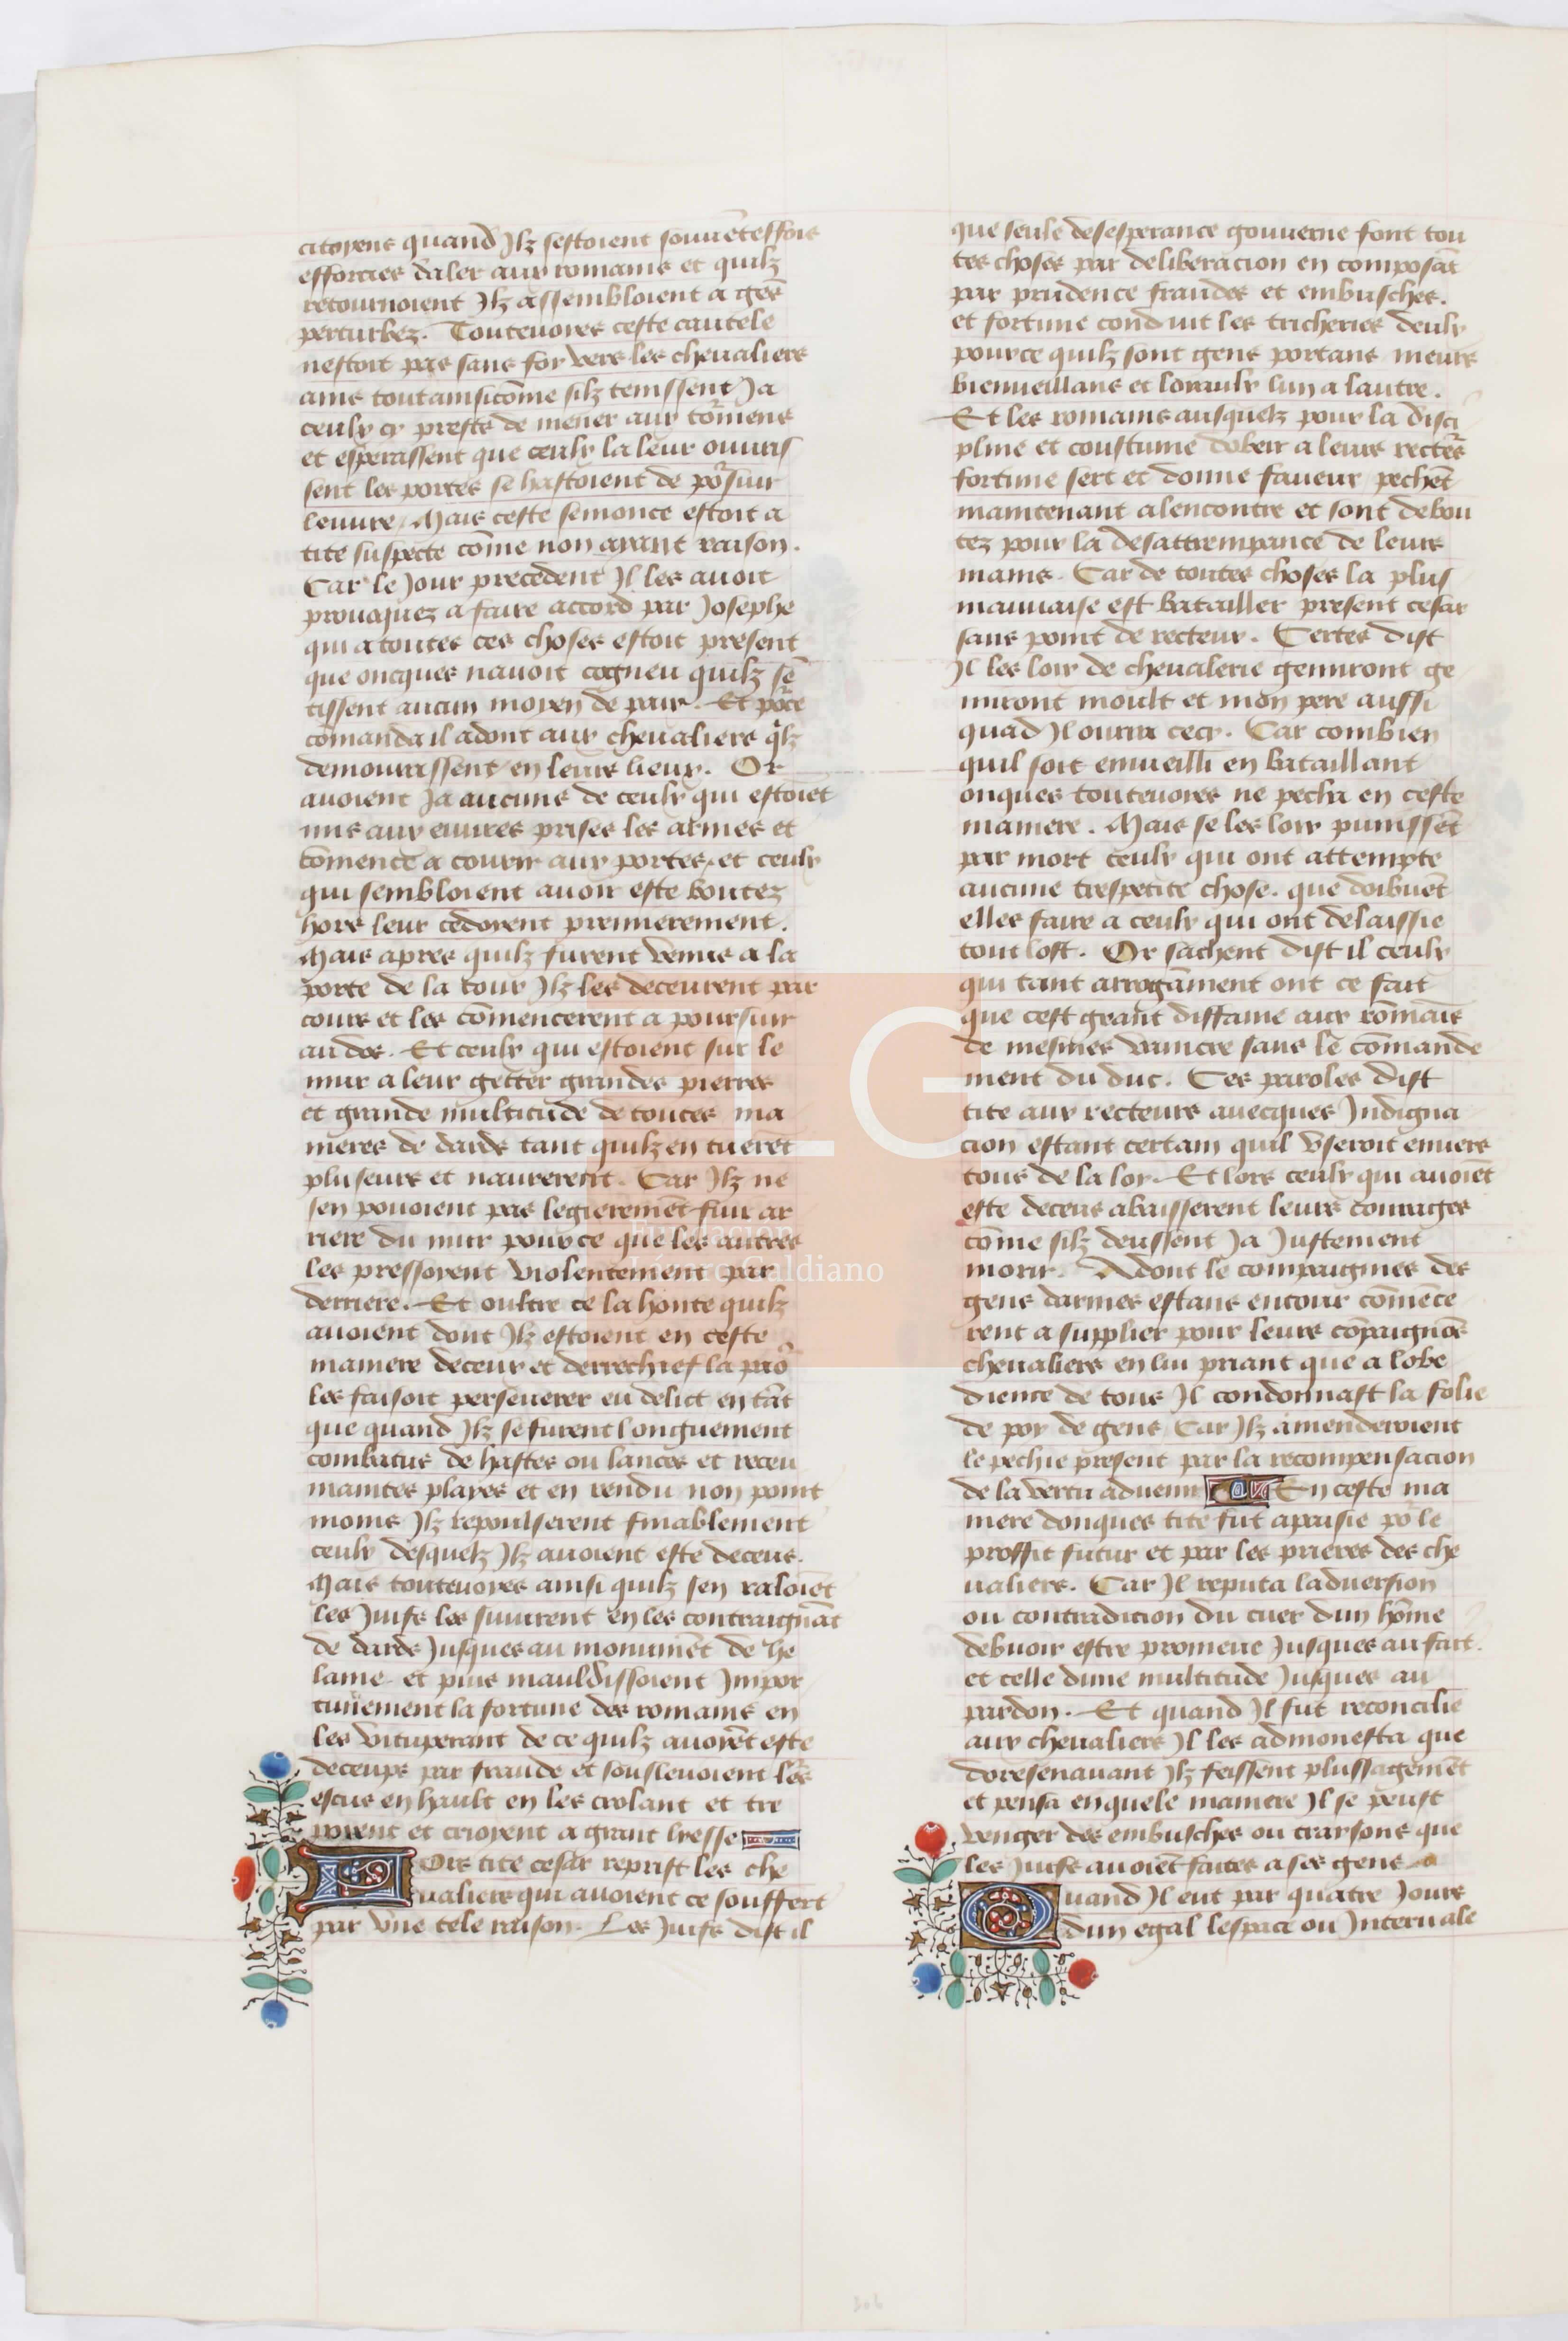 citoyens quand Ilz sestoient souuēteffois
efforcies daler aux romains et quilz
retournoient Ilz assembloient a gēs
perturbez. Touteuoies ceste cautele
nestoit pas sans foy vers les cheualiers
ains toutainsicōme silz tenissent Ja
ceulx cy prests de mener aux tōmens
et esperassent que ceulx la leur ouuris
sent les portes se hastoient de pōsuir
leuure. Mais ceste semonce estoit a
tite suspecte cōme non ayant raison.
Car le Jour precedent Il les auoit
prouoquez a faire accord par Josephe
qui a toutes ces choses estoit present
que oncques nauoit cogneu quilz sē
tissent aucun moyen de paix. Et pōce
comanda il adont aux cheualiers q̄lz
demourassent en leurs lieux. Or
auoient Ja aucuns de ceulx qui estoiēt
mis aux euures prises les armes et
cōmencē a courir aux portes. et ceulx
qui sembloient auoir este boutez
hors leur cedoyent premierement.
Mais apres quilz furent venus a la
porte de la tour Ilz les deceurent par
cours et les cōmencerent a poursuir
au dos. Et ceulx qui estoient sur le
mur a leur getter grandes pierres
et grande multitude de toutes ma
nieres de dards tant quilz en tuerēt
pluseurs et naurerent. Car Ilz ne
sen pouoient pas legieremēt fuir ar
riere du mur pource que les autres
les pressoyent violentement par
derriere. Et oultre ce la honte quilz
auoient dont Ilz estoient en ceste
maniere deceux et derrechief la paō
les faisoit perseuerer eu delict en tāt
que quand Ilz se furent longuement
combatus de hastes ou lances et receu
maintes playes et en rendu non point
moins Ilz repoulserent finablement
ceulx desquelz Ilz auoient este deceus.
Mais touteuoyes ainsi quilz sen raloiēt
les Juifs les suiuirent en les contraignāt
de dards Jusques au monumēt de he
laine. et puis mauldissoient Impor
tunement la fortune des romains en
les vituperant de ce quilz auoyēt este
deceups par fraude et sousleuoient lēs
escus en hault en les crolant et tre
poient et crioyent a grant lyesse
Lors tite cesar reprist les che
ualiers qui auoient ce souffert
par vne tele raison. Les Juifs dist il
que seule desesperance gouuerne font tou
tes choses par deliberacion en composāt
par prudence fraudes et embusches.
et fortune conduit les tricheries deulx
pource quilz sont gens portans meurs
bienueillans et loyaulx lun a lautre.
Et les romains ausquelz pour la disci
pline et coustume dobeir a leurs rectēs
fortune sert et donne faueur pechēt
maintenant alencontre et sont debou
tez pour la desattrempance de leurs
mains. Car de toutes choses la plus
mauuaise est batailler present cesar
sans point de recteur. Certes dist
Il les loix de cheualerie gemiront ge
miront moult et mon pere aussi
quād Il ourra cecy. Car combien
quil soit enuieilli en bataillant
onques touteuoyes ne pecha en ceste
maniere. Mais se les loix punissēt
par mort ceulx qui ont attempte
aucune trespetite chose. que doibuēt
elles faire a ceulx qui ont delaissie
tout lost. Or sachent dist il ceulx
qui tant arrogāment ont ce fait
que cest geant diffame aux rōmais
de mesmes vaincre sans le cōmande
ment du duc. Ces paroles dist
tite aux recteurs auecques Indigna
cion estant certain quil vseroit enuers
tous de la loy. Et lors ceulx qui auoiēt
este deceus abaisserent leurs courages
cōme silz deussent Ja Justement
morir. Adont le compaignies des
gens darmes estans entour cōmēce
rent a supplier pour leurs cōpaignōs
cheualiers en lui priant que a lobe
dience de tous Il condonnast la folie
de poy de gens Car Ilz amenderoient
le pechie present par la recompensacion
de la vertu aduenir En ceste ma
niere donques tite fut apaisie pō le
proffit futur et par les prieres des che
ualiers. Car Il reputa laduersion
ou contradicion du cuer dun hōme
debuoir estre promeue Jusques au fait.
et celle dune multitude Jusques au
pardon. Et quand Il fut reconcilie
aux cheualiers Il les admonesta que
doresenauant Ilz feissent plussagemēt
et pensa en quele maniere Il se peust
venger des embusches ou traysons que
les Juifs auoiēt faites a ses gens
Quand Il eut par quatre Jours
dun egal lespace ou Interuale
LG
Fundación
Lázaro Galdiano
306